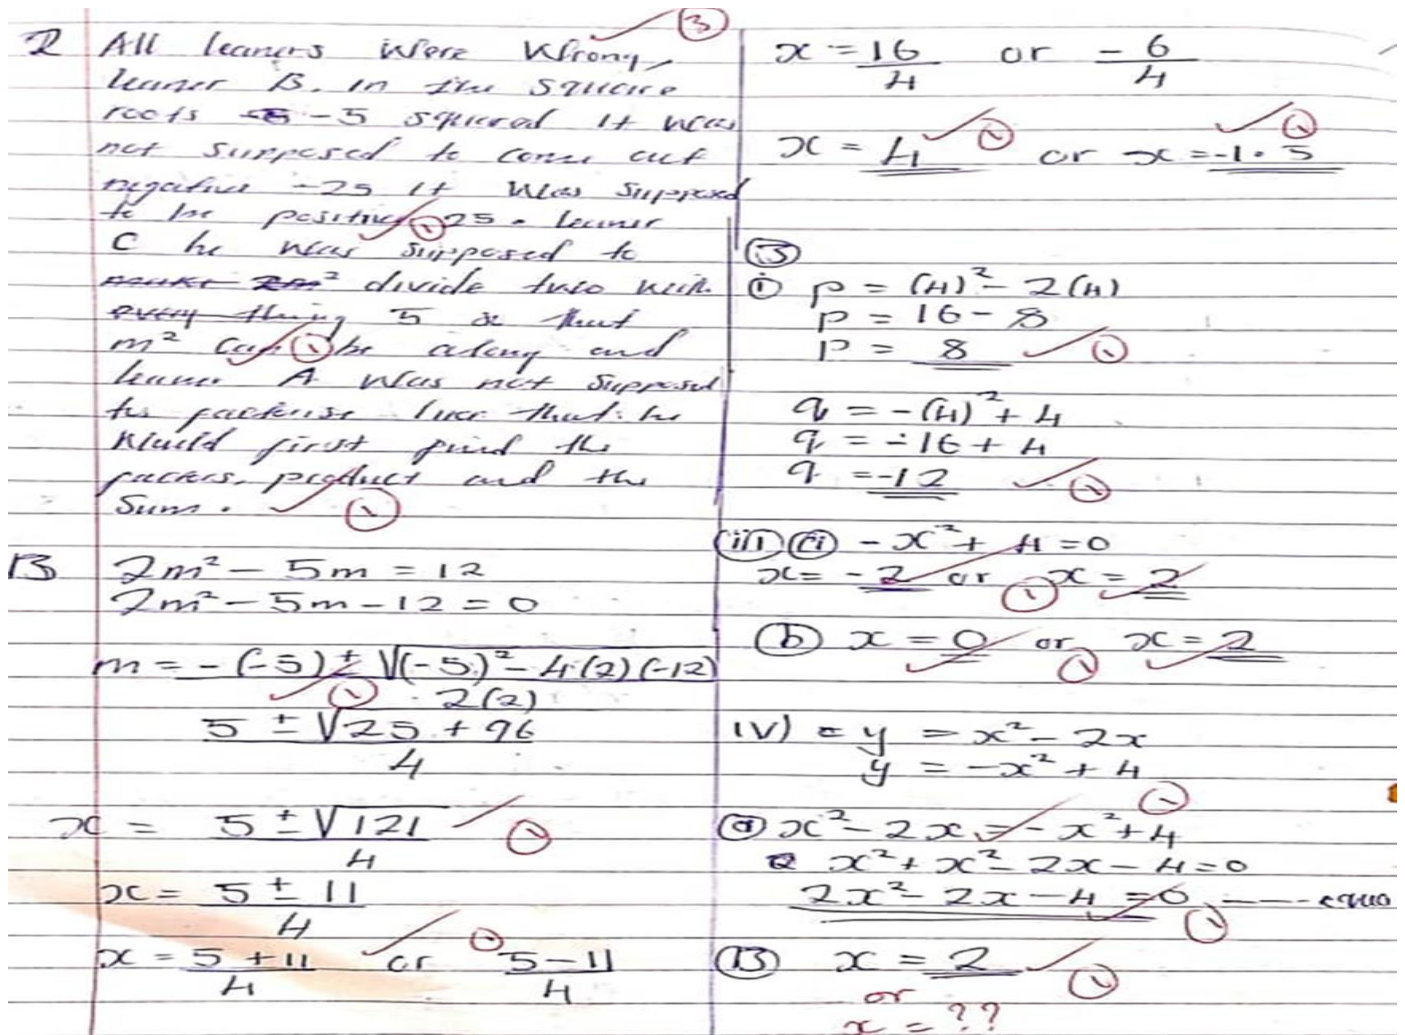 2 All leaners were wrong, 3
leaner B. in the square
roots -5 squared it was
not supposed to come out
negative -25 it was supposed
to be positive 25. leaner
C he was supposed to
divide two with
every thing so that
m² can be along and
leaner A was not supposed
to factorise that he
would first find the
factors, product and the
Sum. 1
B 2m² - 5m = 12
2m² - 5m - 12 = 0
m = -(-5) ± √(-5)² - 4(2)(-12)
1 2(2)
5 ± √25 + 96
4
x = 5 ± √121 1
4
x = 5 ± 11
4
x = 5 + 11 or 5 - 11
4 4
x = 16 or - 6
4 4
x = 4 1 or x = -1.5 1
B
i p = (4)² - 2(4)
p = 16 - 8
p = 8 1
q = -(4)² + 4
q = -16 + 4
q = -12 1
iii i -x² + 4 = 0
x = -2 or 1 x = 2
b x = 0 or 1 x = 2
iv) y = x² - 2x
y = -x² + 4
1
a x² - 2x = -x² + 4
x² + x² - 2x - 4 = 0
2x² - 2x - 4 = 0
1
B x = 2 1
or
x = ??